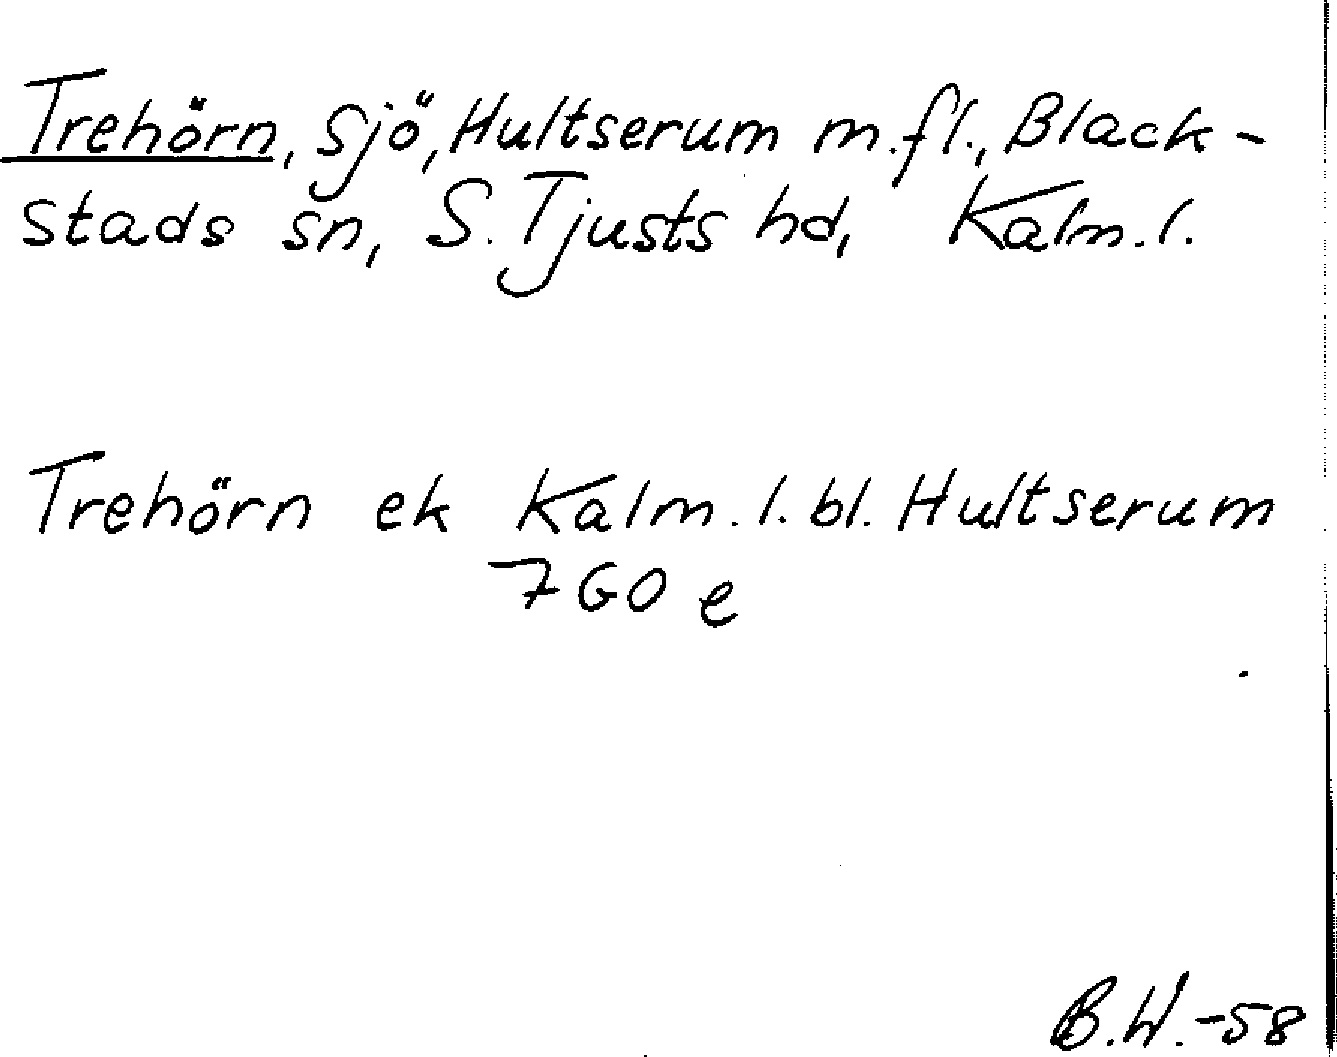 Trehörn, sjö, Hultserum m.fl., Black-
stads sn, S. Tjusts hd, Kalm. l.
Trehörn ek Kalm. l. bl. Hultserum
7 GO e
B.W.-58